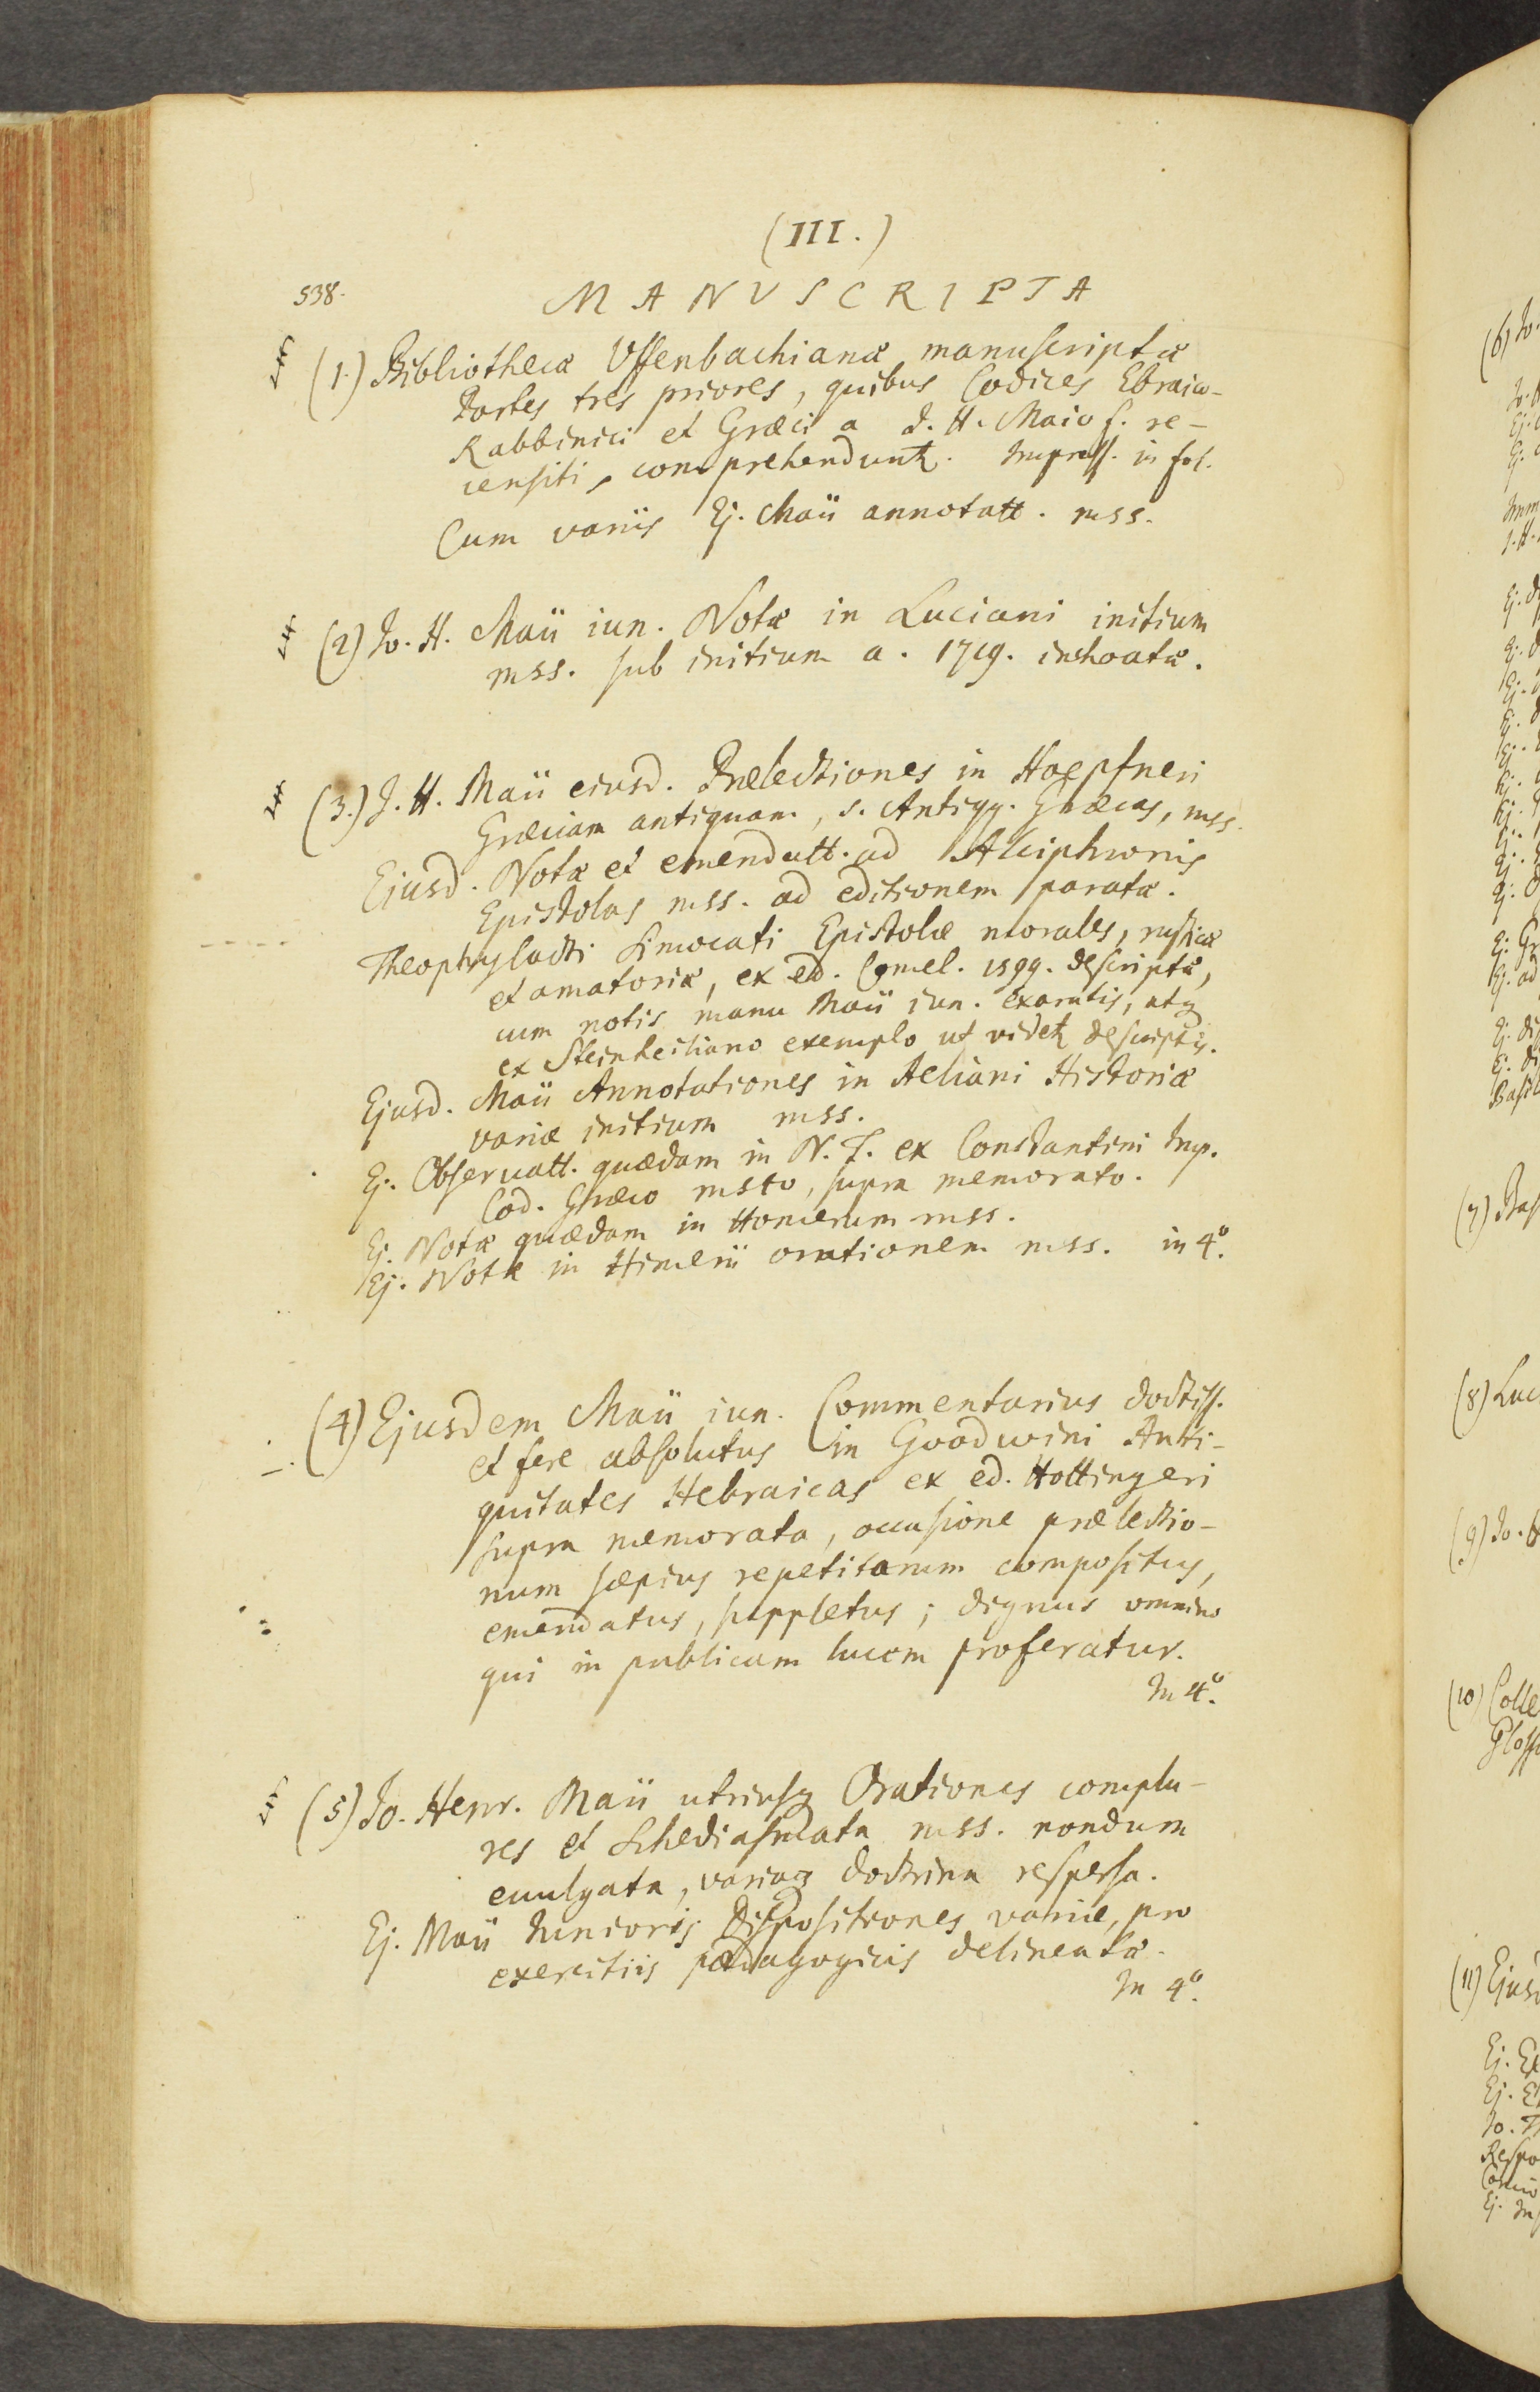 (III.)
538.
MANVSCRIPTA
(1.) Bibliothecæ Uffenbachianæ manuscriptæ
Partes tres priores, quibus Codices Ebraico-
Rabbinici et Græci a J. H. Maio f. re-
censiti, comprehendunt. Impress. in fol.
Cum variis Ej. Maii annotatt. mss.
(2) Jo. H. Maii iun. Notæ in Luciani initium
mss. sub initium a. 1719. inchoatæ.
(3.) J. H. Maii eiusd. Prælectiones in Hoepfneri
Græciam antiquam, s. Antiqq. Græcas, mss.
Ejusd. Notæ et emendatt. ad Alciphronis
Epistolas mss. ad editionem paratæ.
Theophylacti Simocati Epistolæ morales, rusticæ
et amatoriæ, ex ed. Comel. 1599. descriptæ,
cum notis manu Maii iun. exaratis, atq
ex Steinheiliano exemplo ut videt descriptis.
Ejusd. Maii Annotationes in Aeliani Historiæ
variæ initium mss.
Ej. Observatt. quædam in N. T. ex Constantini Imp.
Cod. Græco msto, supra memorato.
Ej. Notæ quædam in Homerum mss.
Ej. Notæ in Himerii orationem mss. in 4º.
(4) Ejusdem Maii iun. Commentarius doctiss.
et fere absolutus in Goodwini Anti-
quitates Hebraicas ex ed. Hottingeri
supra memorata, occasione prælectio-
num sæpius repetitarum compositus,
emendatus, suppletus; dignus omnino
qui in publicam lucem proferatur.
In 4º.
(5) Jo. Henr. Maii utriusq Orationes complu-
res et Schediasmata mss. nondum
evulgata, variaq doctrina respersa.
Ej. Maii Iunioris Dispositiones variæ, pro
exercitiis pædagogicis delineatæ.
In 4º.
(6) Jo.
(7) Bas
(8) Luc
(9) Jo.
(10) Colle
Gloss
(11) Ejusd
Ej.
Ej.
Jo.
Respo
Ej.